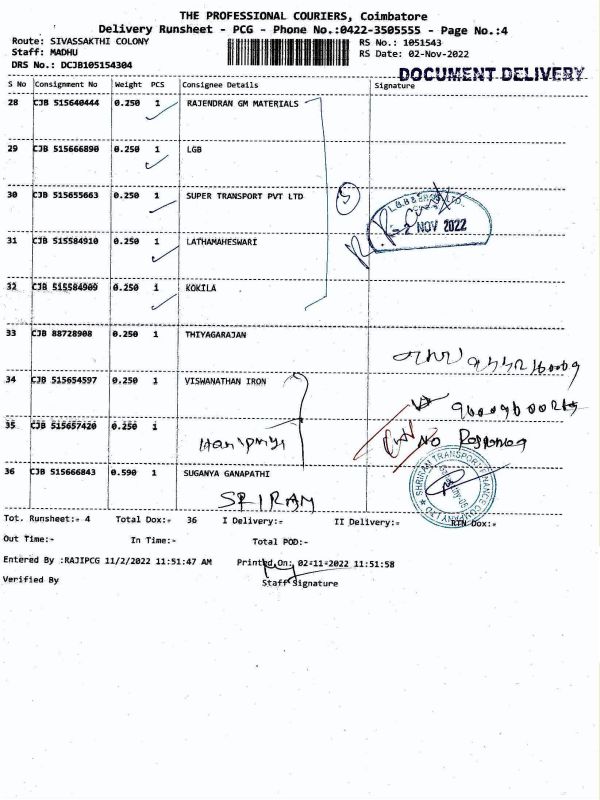 THE PROFESSIONAL COURIERS, Coimbatore
Delivery Runsheet - PCG - Phone No.:0422-3505555 - Page No.:4
Route: SIVASSAKTHI COLONY RS No.: 1051543
Staff: MADHU RS Date: 02-Nov-2022
DRS No.: DCJB105154304
DOCUMENT DELIVERY
S No Consignment No Weight PCS Consignee Details Signature
28 CJB 515640444 0.250 1 RAJENDRAN GM MATERIALS
29 CJB 515666890 0.250 1 LGB
30 CJB 515655663 0.250 1 SUPER TRANSPORT PVT LTD
5
2 NOV 2022
31 CJB 515584910 0.250 1 LATHAMAHESWARI
32 CJB 515584909 0.250 1 KOKILA
33 CJB 88728908 0.250 1 THIYAGARAJAN
34 CJB 515654597 0.250 1 VISWANATHAN IRON
35 CJB 515657420 0.250 1
Haripriya
NO
36 CJB 515666843 0.590 1 SUGANYA GANAPATHI
SRIRAM
SHRIRAM TRANSPORT FINANCE COMPANY LTD
Tot. Runsheet:- 4 Total Dox:- 36 I Delivery:- II Delivery:- RTN Dox:-
Out Time:- In Time:- Total POD:-
Entered By :RAJIPCG 11/2/2022 11:51:47 AM Printed On: 02-11-2022 11:51:58
Verified By Staff Signature